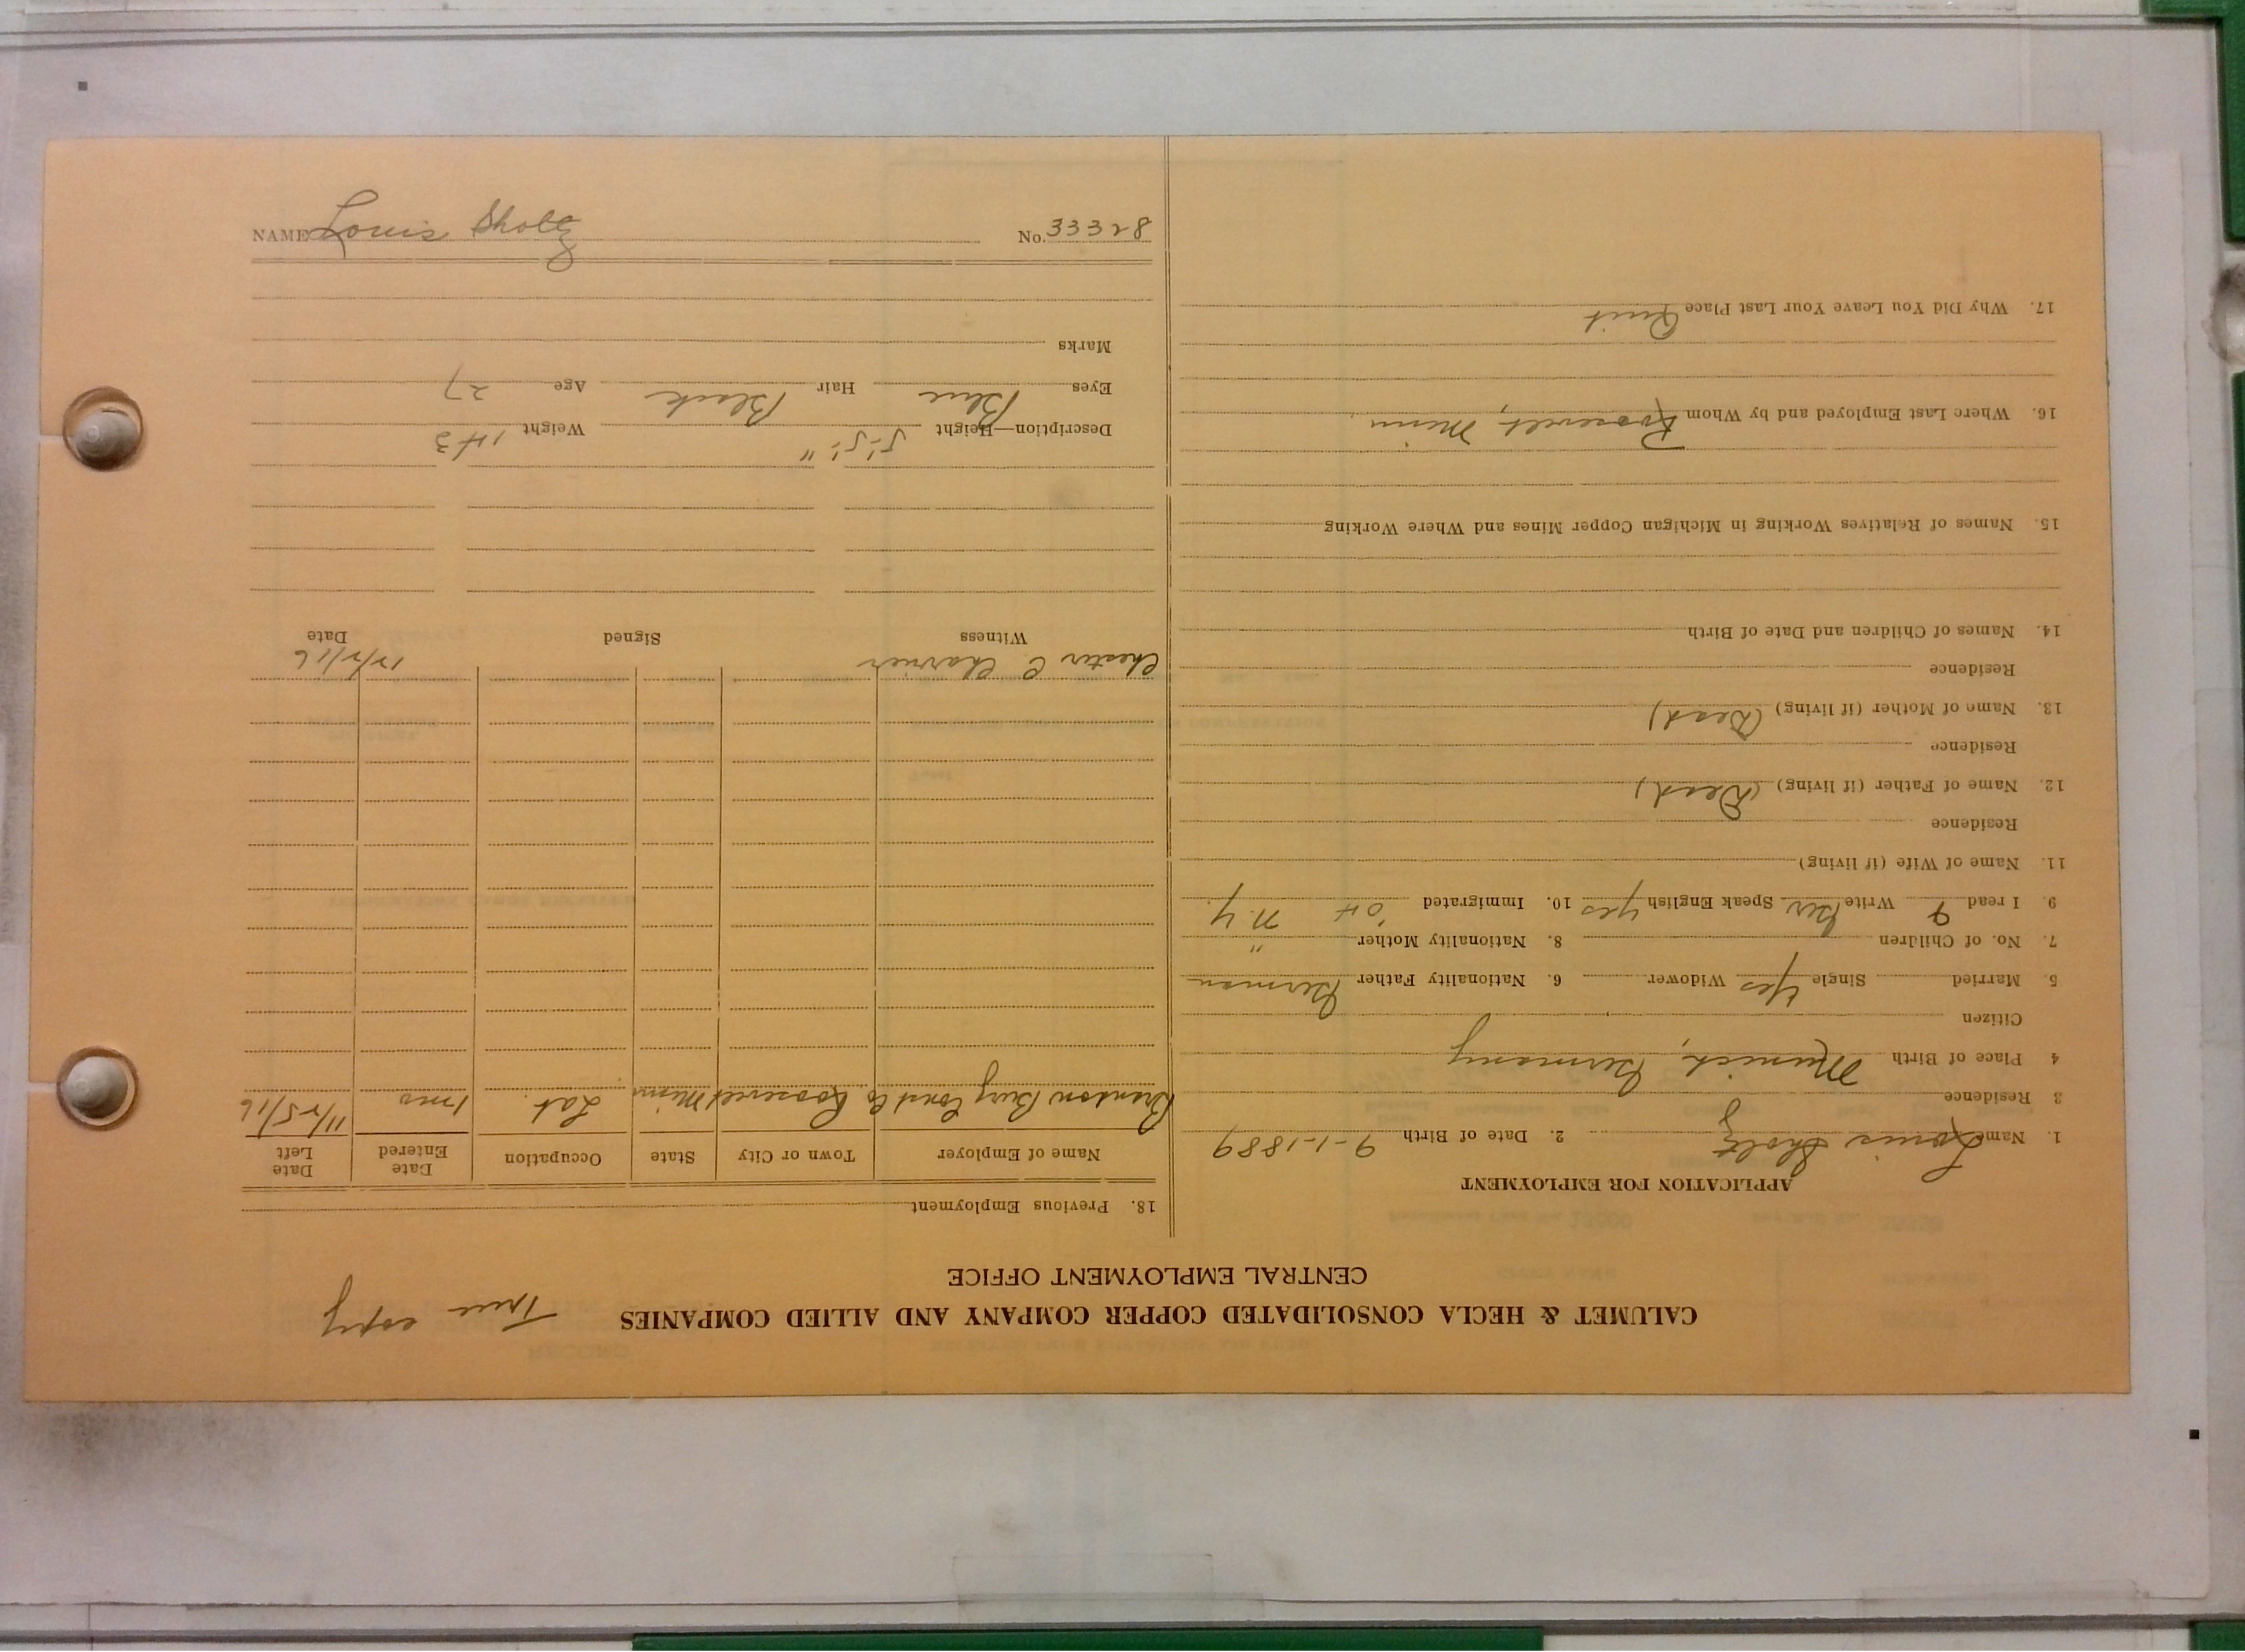 CALUMET & HECLA CONSOLIDATED COPPER COMPANY AND ALLIED COMPANIES True copy
CENTRAL EMPLOYMENT OFFICE
APPLICATION FOR EMPLOYMENT
1. Name Louis Sholtz 2. Date of Birth 9-1-1889
3 Residence
4 Place of Birth Munich, Germany
Citizen
5. Married Single Yes Widower 6. Nationality Father German
7. No. of Children 8. Nationality Mother "
9. I read & Write Ger Speak English Yes 10. Immigrated '04 N.Y.
11. Name of Wife (if living)
Residence
12. Name of Father (if living) (Dead)
Residence
13. Name of Mother (if living) (Dead)
Residence
14. Names of Children and Date of Birth
15. Names of Relatives Working in Michigan Copper Mines and Where Working
16. Where Last Employed and by Whom Roosevelt, Minn
17. Why Did You Leave Your Last Place Quit
18. Previous Employment
Name of Employer Town or City State Occupation Date Entered Date Left
Const Co Roosevelt Minn Lab. 1 mo 11/25/16
Chester C 12/2/16
Witness Signed Date
Description—Height 5'-5" Weight 143
Eyes Blue Hair Black Age 27
Marks
NAME Louis Sholtz No. 33328